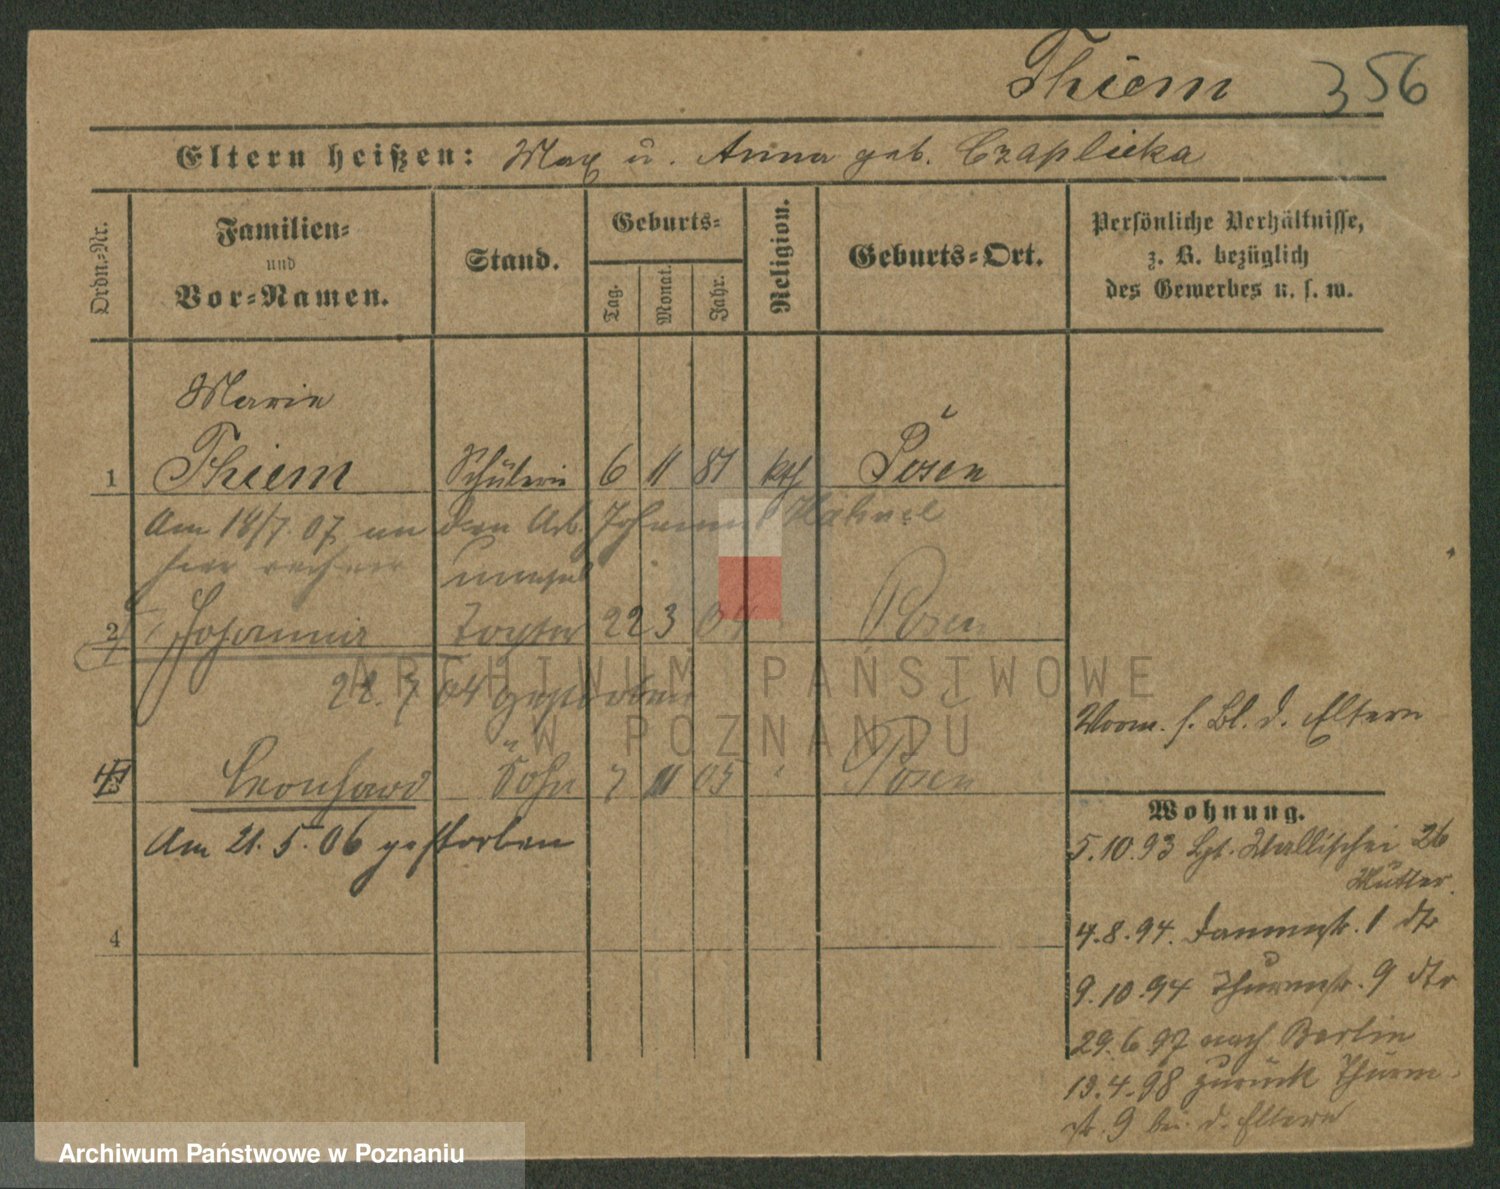 Thiem 356
Eltern heißen: Max u. Anna geb. Czaplicka
Ordn.-Nr.
Familien-
und
Vor-Namen.
Stand.
Geburts-
Tag.
Monat.
Jahr.
Religion.
Geburts-Ort.
Persönliche Verhältnisse,
z. B. bezüglich
des Gewerbes u. s. w.
Marie
1 Thiem Schülerin 6 11 81 kth Posen
Am 18/7. 07 an den Arb. Johann
hier
2 Johanna Tochter 22 3 04 Posen
22. 7 04 gestorben
3 Leonhard Sohn 7 11 05 Posen
Am 21. 5. 06 gestorben
4
Vorm. s. Bl. d. Eltern
Wohnung.
5.10.93 Wallischei 26
Mutter.
4.8.94. Dammstr. 1 dto
9.10.94 Thurmstr. 9 dto
29.6.97 nach Berlin
13.4.98 zurück Thurm-
str. 9 bei d. Eltern
ARCHIWUM PAŃSTWOWE
W POZNANIU
Archiwum Państwowe w Poznaniu